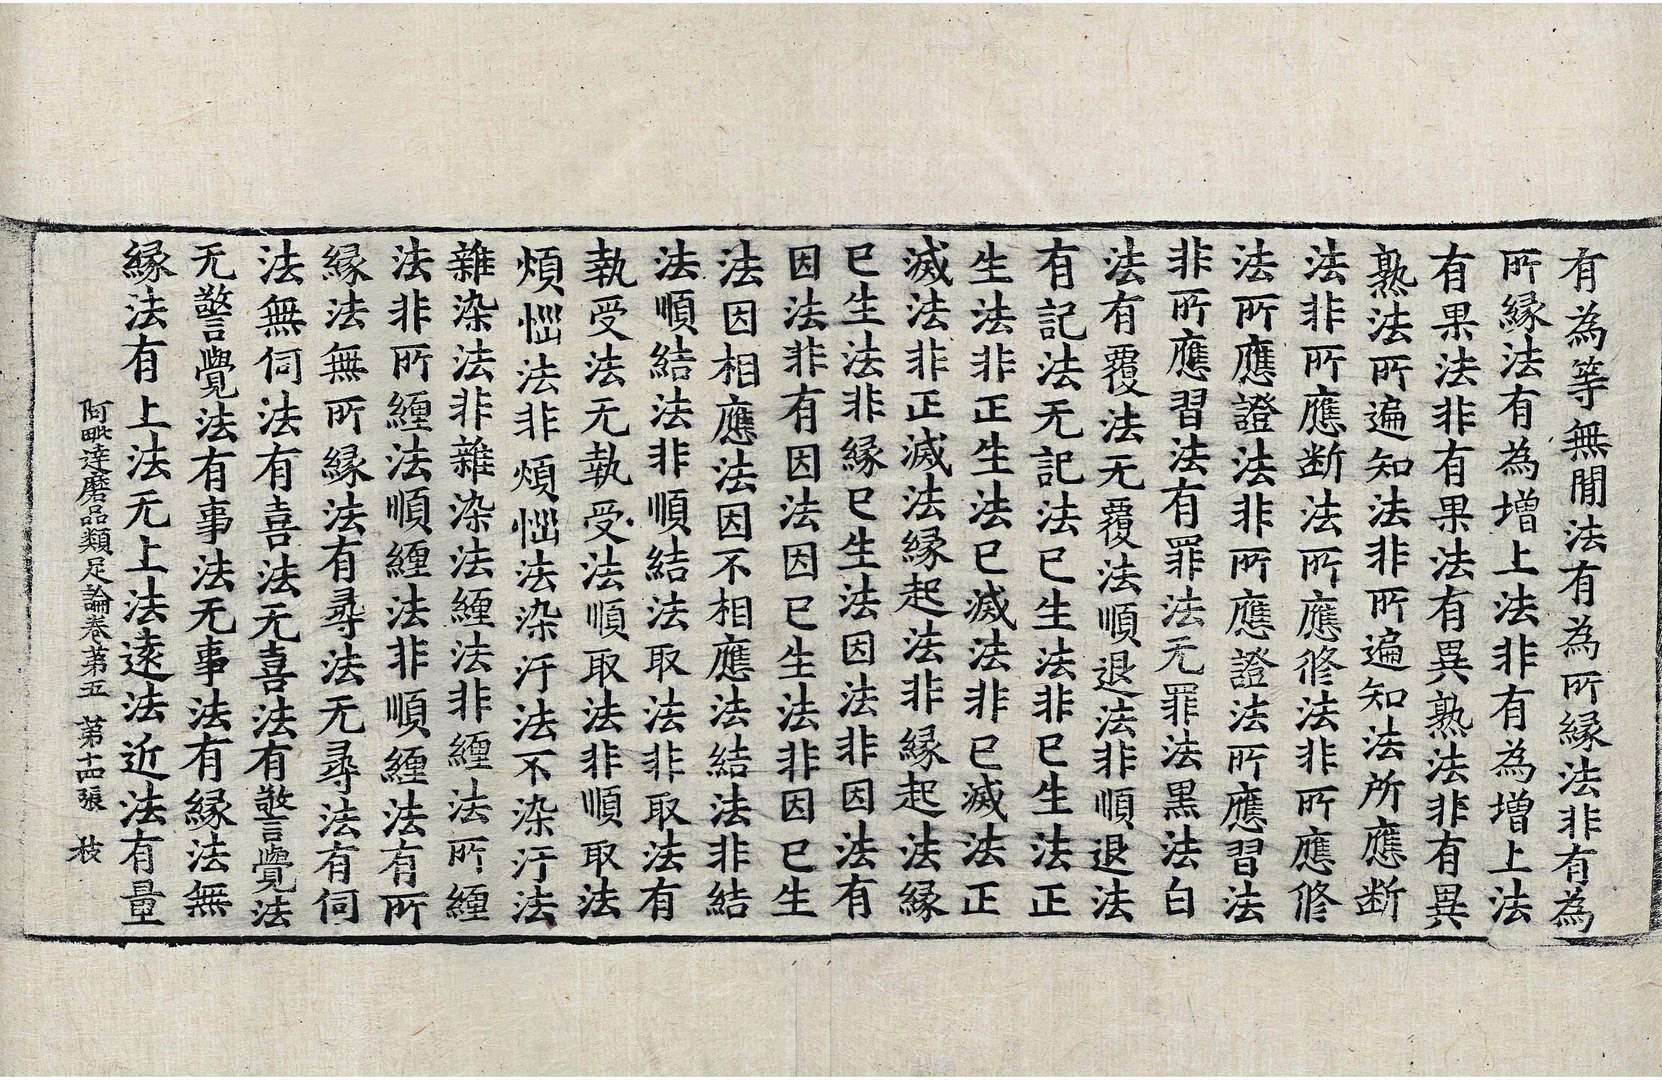 有為等無閒法有為所縁法非有為
所縁法有為增上法非有為增上法
有果法非有果法有異熟法非有異
熟法所遍知法非所遍知法所應断
法非所應断法所應修法非所應修
法所應證法非所應證法所應習法
非所應習法有罪法无罪法黒法白
法有覆法无覆法順退法非順退法
有記法无記法已生法非已生法正
生法非正生法已滅法非已滅法正
滅法非正滅法縁起法非縁起法縁
已生法非縁已生法因法非因法有
因法非有因法因已生法非因已生
法因相應法因不相應法結法非結
法順結法非順結法取法非取法有
執受法无執受法順取法非順取法
煩惱法非煩惱法染汙法不染汙法
雜染法非雜染法纏法非纏法所纏
法非所纏法順纏法非順纏法有所
縁法無所縁法有尋法无尋法有伺
法無伺法有喜法无喜法有警覺法
无警覺法有事法无事法有縁法無
縁法有上法无上法遠法近法有量
阿毗達磨品類足論卷苐五 苐十四張 枝